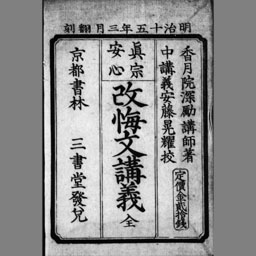 明治十五年三月翻刻
香月院深励講師著
中講義安藤晃耀校
定價金貳拾錢
眞宗
安心
改悔文講義 全
京都書林 三書堂發兌